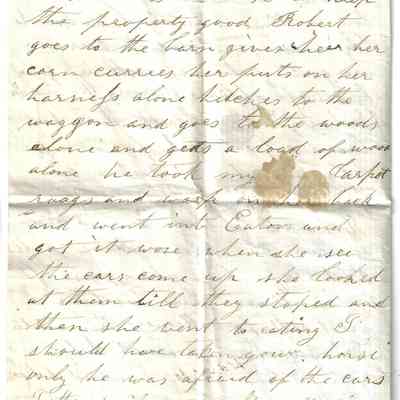 the property good Robert
goes to the barn gives her her
corn curries her puts on her
harness alone hitches to the
waggon and goes to the woods
alone and gets a load of wood
alone he took my Carpet
raags and warp back
and went into Eaton and
got it wove when she see
the cars come up she looked
at them till they stoped and
then she went to eating I
should have taken your horse
only he was afraid of the cars